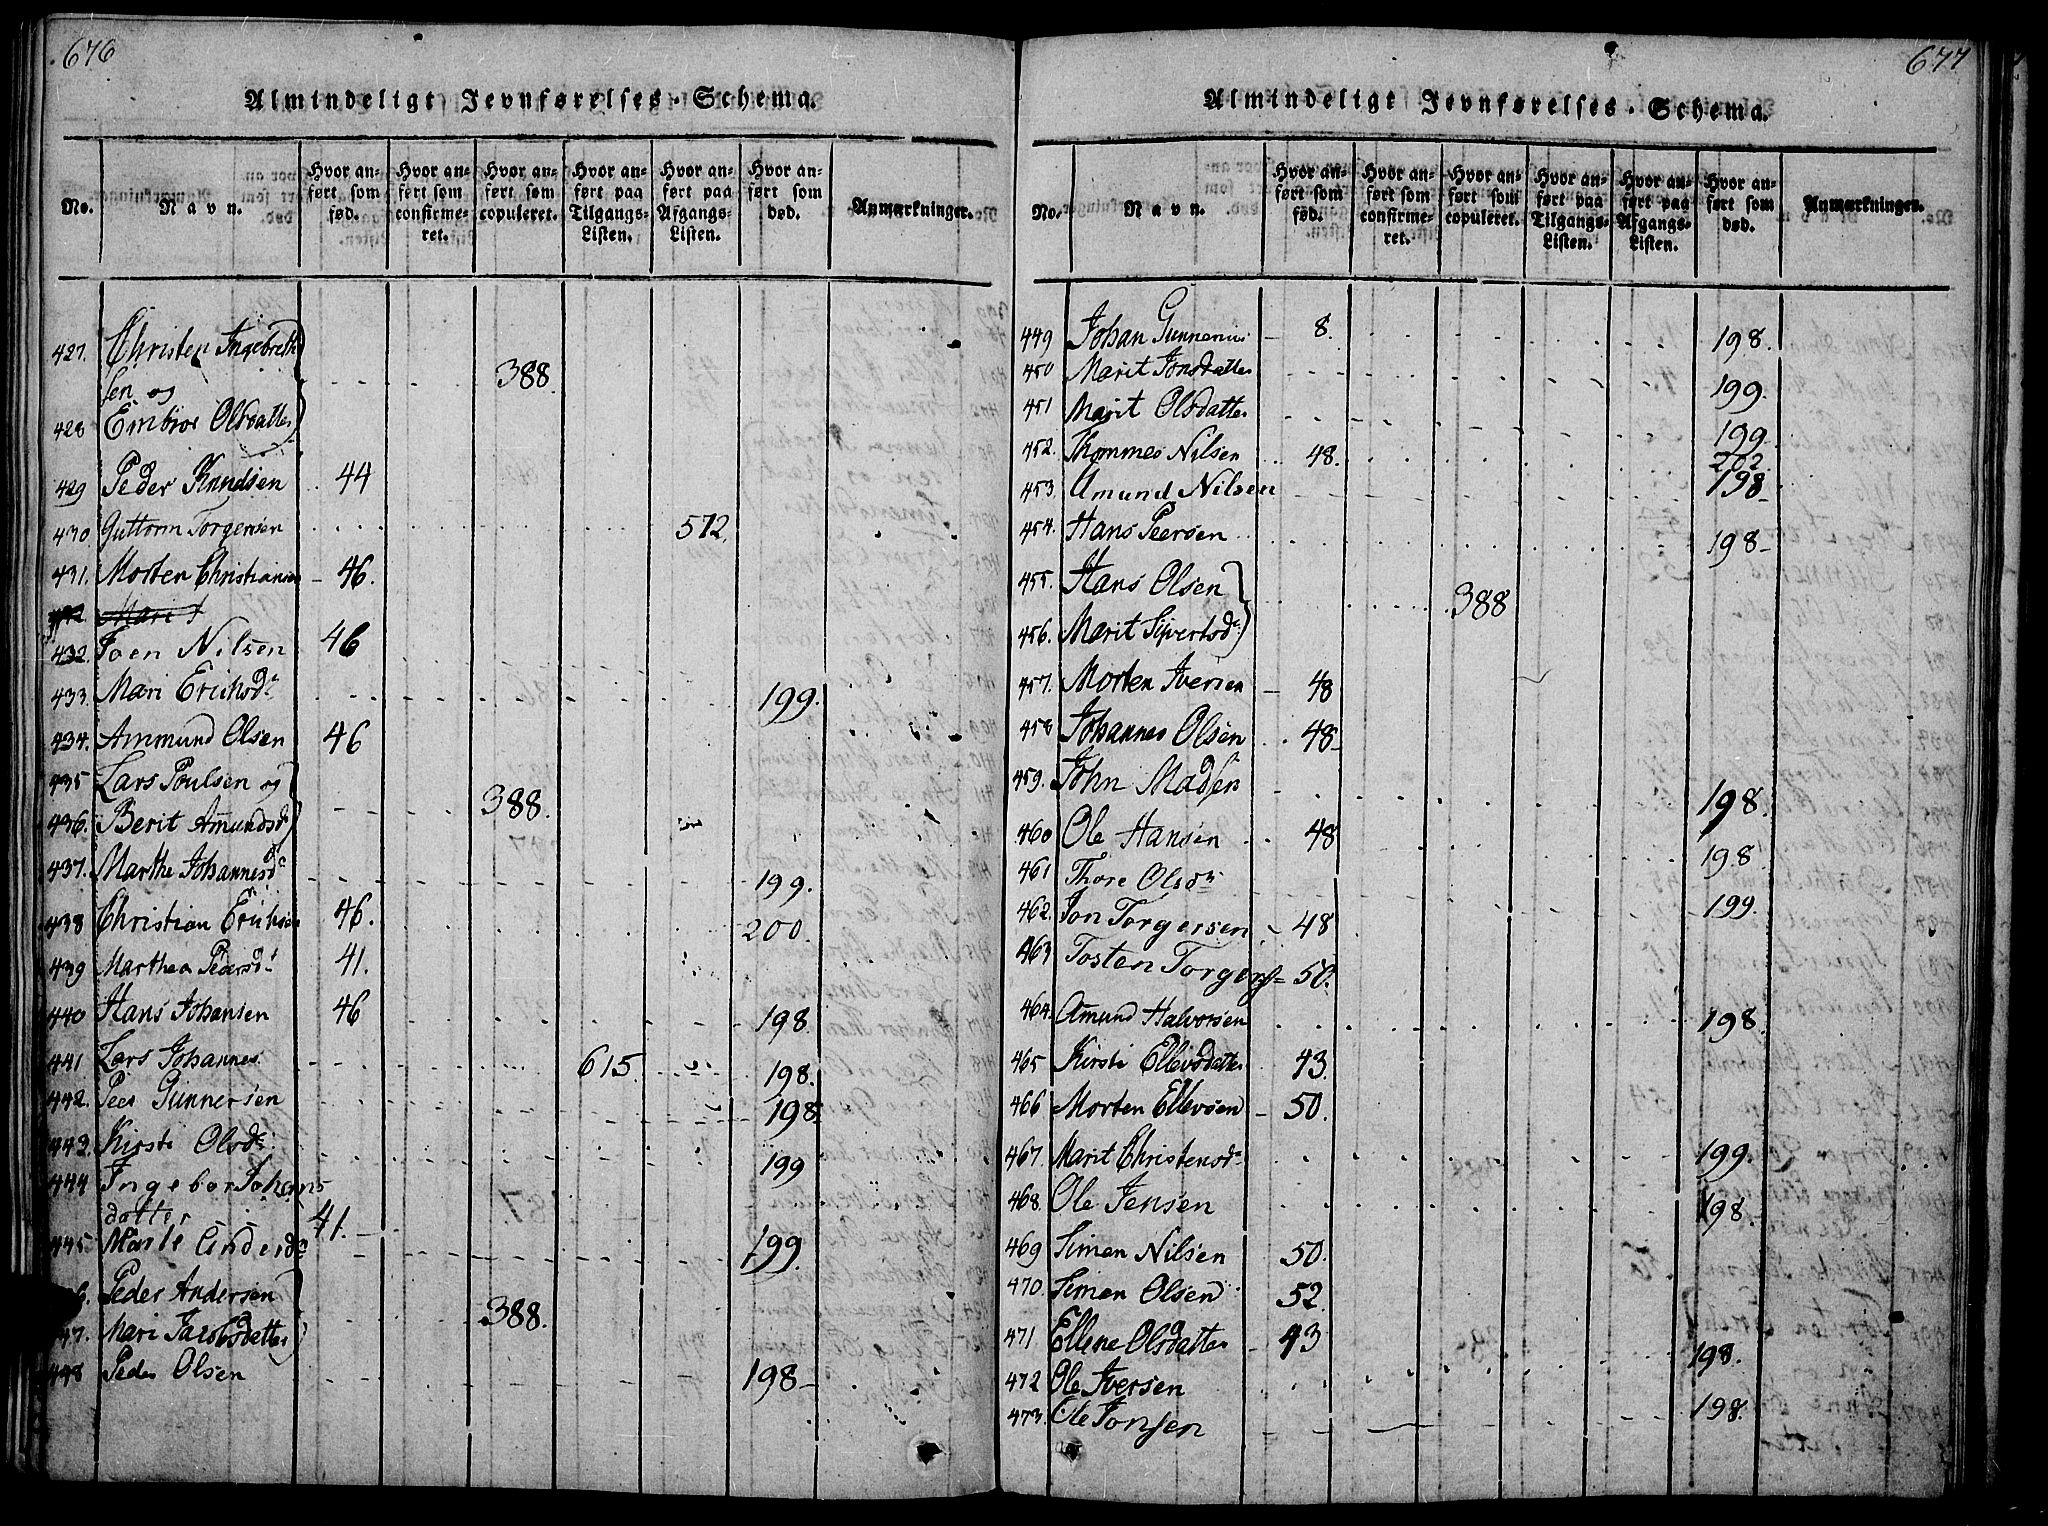 676
Almindeligt Jevnførelses-Schema.
No. | Navn. | Hvor anført som fød. | Hvor anført som confirmeret. | Hvor anført som copuleret. | Hvor anført paa Tilgangs-Listen. | Hvor anført paa Afgangs-Listen. | Hvor anført som død. | Anmærkninger.
427. Christen Ingebreth
sen og 388.
428 Embiør Olsdatter
429 Peder Knudsen 44
430. Guttorm Torgersen 572.
431. Morten Christiansen 46.
Marit
432. Joen Nilsen 46
433. Mari Erichsd. 199.
434. Ammund Olsen 46
435 Lars Poulsen og
436. Berit Amundsd 388.
437. Marthe Johannesd 199.
438 Christian Erichsen 46. 200.
439 Marthea Pedersd. 41.
440 Hans Johansen 46 198
441 Lars Johannes 615. 198.
442. Peer Gunnersen 198.
443. Kirsti Olsd. 199
444 Ingebor Johans
datter 41.
445 Marte Anders d. 199.
6. Peder Andersen
47. Mari Jacobsdatter 388.
448 Peder Olsen 198
677
Almindeligt Jevnførelses-Schema.
No. | Navn. | Hvor anført som fød. | Hvor anført som confirmeret. | Hvor anført som copuleret. | Hvor anført paa Tilgangs-Listen. | Hvor anført paa Afgangs-Listen. | Hvor anført som død. | Anmærkninger.
449 Johan Gunnerius 8. 198.
450 Marit Jonsdatter 199.
451 Marit Olsdatter 199
452. Thommes Nilsen 48. 202.
453. Amund Nilsen 198
454. Hans Peersen 198
455. Hans Olsen
456. Marit Sivertsd. 388
457. Morten Iversen 48
458 Johannes Olsen 48
459. John Madsen 198.
460 Ole Hansen 48 198
461 Thore Olsd. 199.
462. Jon Torgersen 48
463 Tosten Torgers 50.
464. Amund Halvorsen 198.
465 Kirsti Ellevsdatter 43.
466 Morten Ellevsen 50.
467. Marit Christensd. 199.
468. Ole Jensen 198.
469 Simen Nilsen 50.
470. Simen Olsen 52.
471 Ellene Olsdatter 43 198.
472 Ole Iversen 198.
473. Ole Jonsen